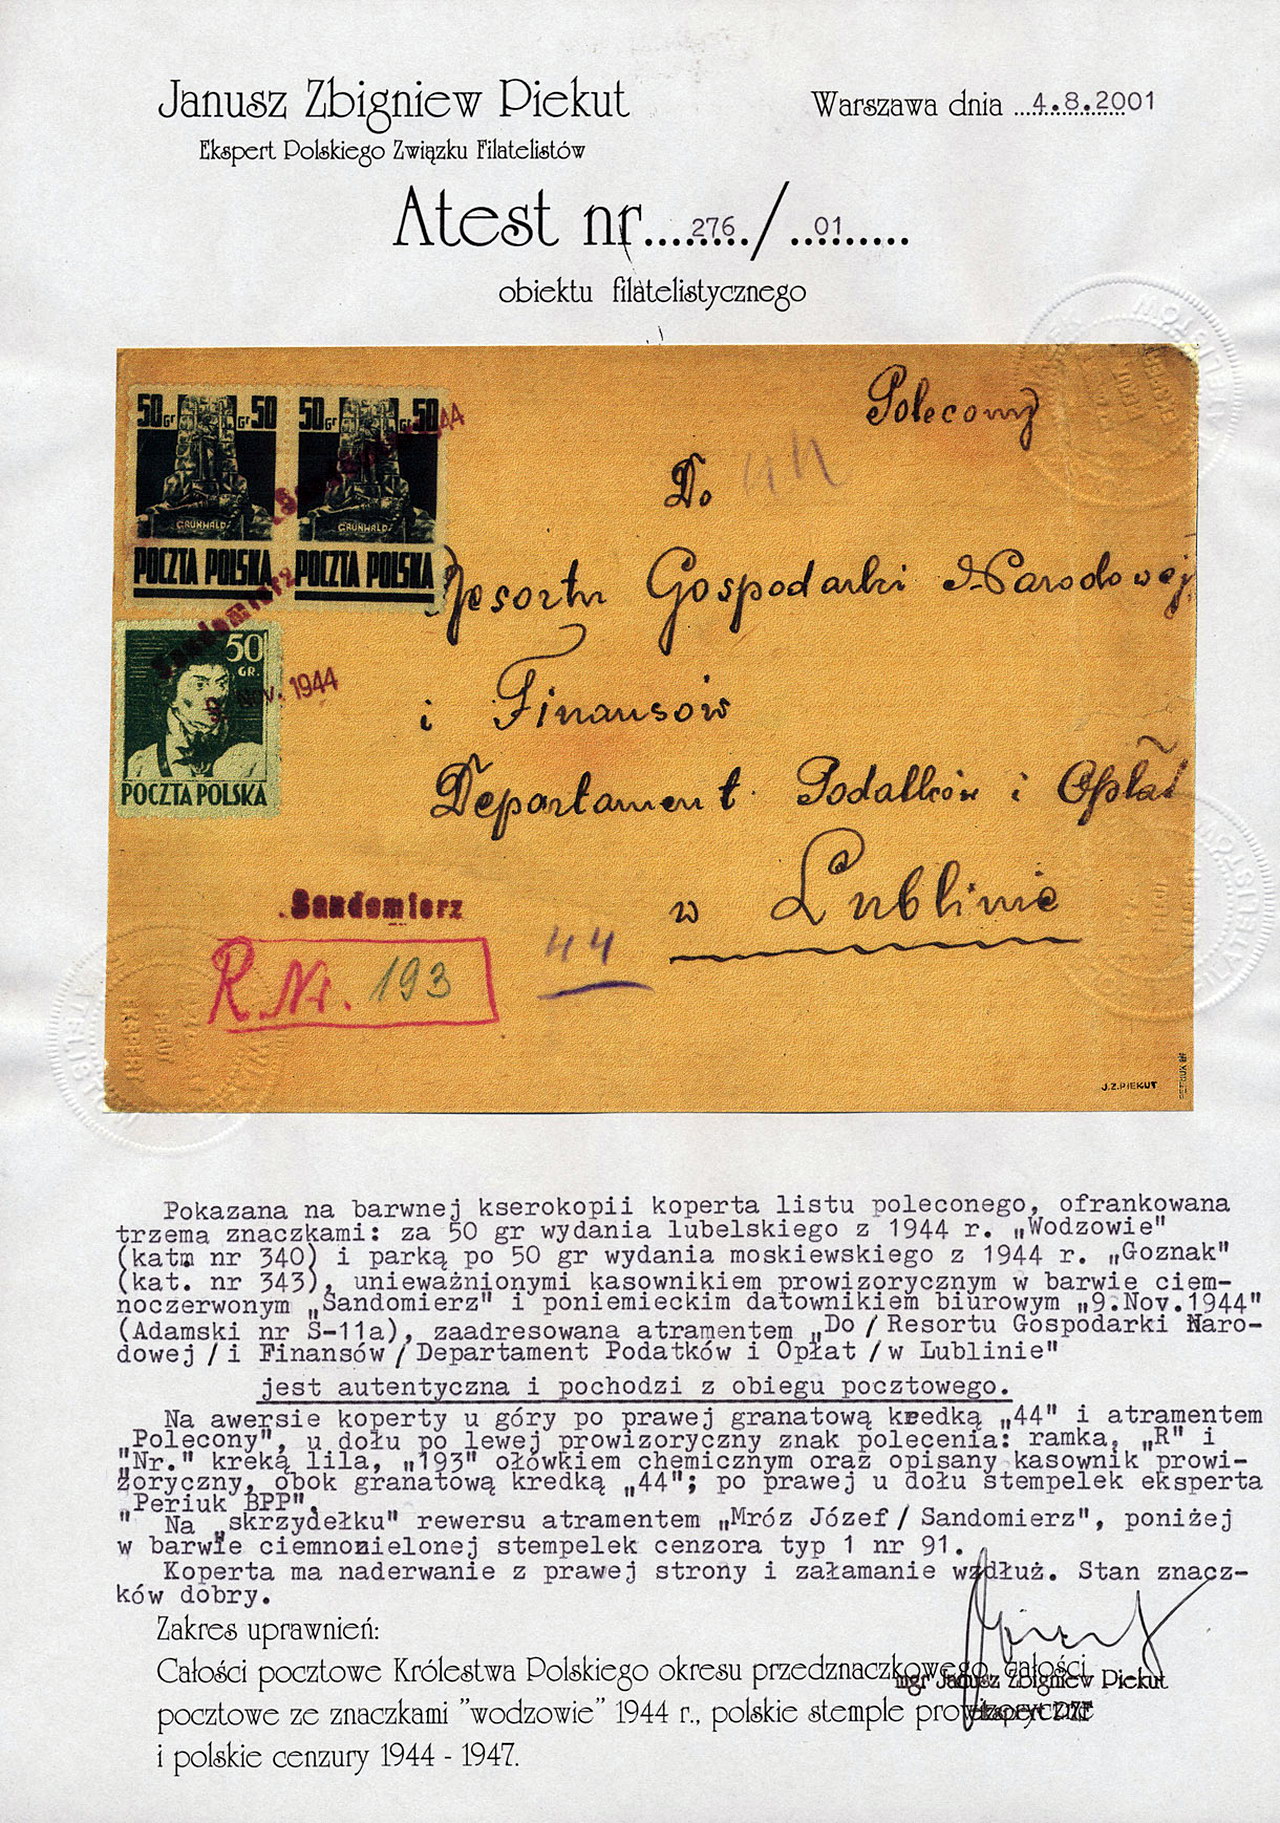 Janusz Zbigniew Piekut
Ekspert Polskiego Związku Filatelistów
Warszawa dnia ...4.8.2001
Atest nr....276./..01.....
obiektu filatelistycznego
Polecony
Do 44
Resortu Gospodarki Narodowej
i Finansów
Departament Podatków i Opłat
w Lublinie
50 Gr Gr 50
50 Gr 50
GRUNWALD
GRUNWALD
POCZTA POLSKA
POCZTA POLSKA
Sandomierz
50
GR.
9. Nov. 1944
POCZTA POLSKA
Sandomierz
R Nr. 193
44
J.Z.PIEKUT
Pokazana na barwnej kserokopii koperta listu poleconego, ofrankowana
trzema znaczkami: za 50 gr wydania lubelskiego z 1944 r. „Wodzowie"
(katm nr 340) i parką po 50 gr wydania moskiewskiego z 1944 r. „Goznak"
(kat. nr 343), unieważnionymi kasownikiem prowizorycznym w barwie ciem-
noczerwonym „Sandomierz" i poniemieckim datownikiem biurowym „9.Nov.1944"
(Adamski nr S-11a), zaadresowana atramentem „Do / Resortu Gospodarki Naro-
dowej / i Finansów / Departament Podatków i Opłat / w Lublinie"
jest autentyczna i pochodzi z obiegu pocztowego.
Na awersie koperty u góry po prawej granatową kredką „44" i atramentem
„Polecony", u dołu po lewej prowizoryczny znak polecenia: ramka, „R" i
„Nr." kreką lila, „193" ołówkiem chemicznym oraz opisany kasownik prowi-
zoryczny, obok granatową kredką „44"; po prawej u dołu stempelek eksperta
„Periuk BPP".
Na „skrzydełku" rewersu atramentem „Mróz Józef / Sandomierz", poniżej
w barwie ciemnozielonej stempelek cenzora typ 1 nr 91.
Koperta ma naderwanie z prawej strony i załamanie wzdłuż. Stan znacz-
ków dobry.
Zakres uprawnień:
Całości pocztowe Królestwa Polskiego okresu przedznaczkowego, całości
mgr Janusz Zbigniew Piekut
pocztowe ze znaczkami "wodzowie" 1944 r., polskie stemple prowizoryczne
ekspert PZF
i polskie cenzury 1944 - 1947.